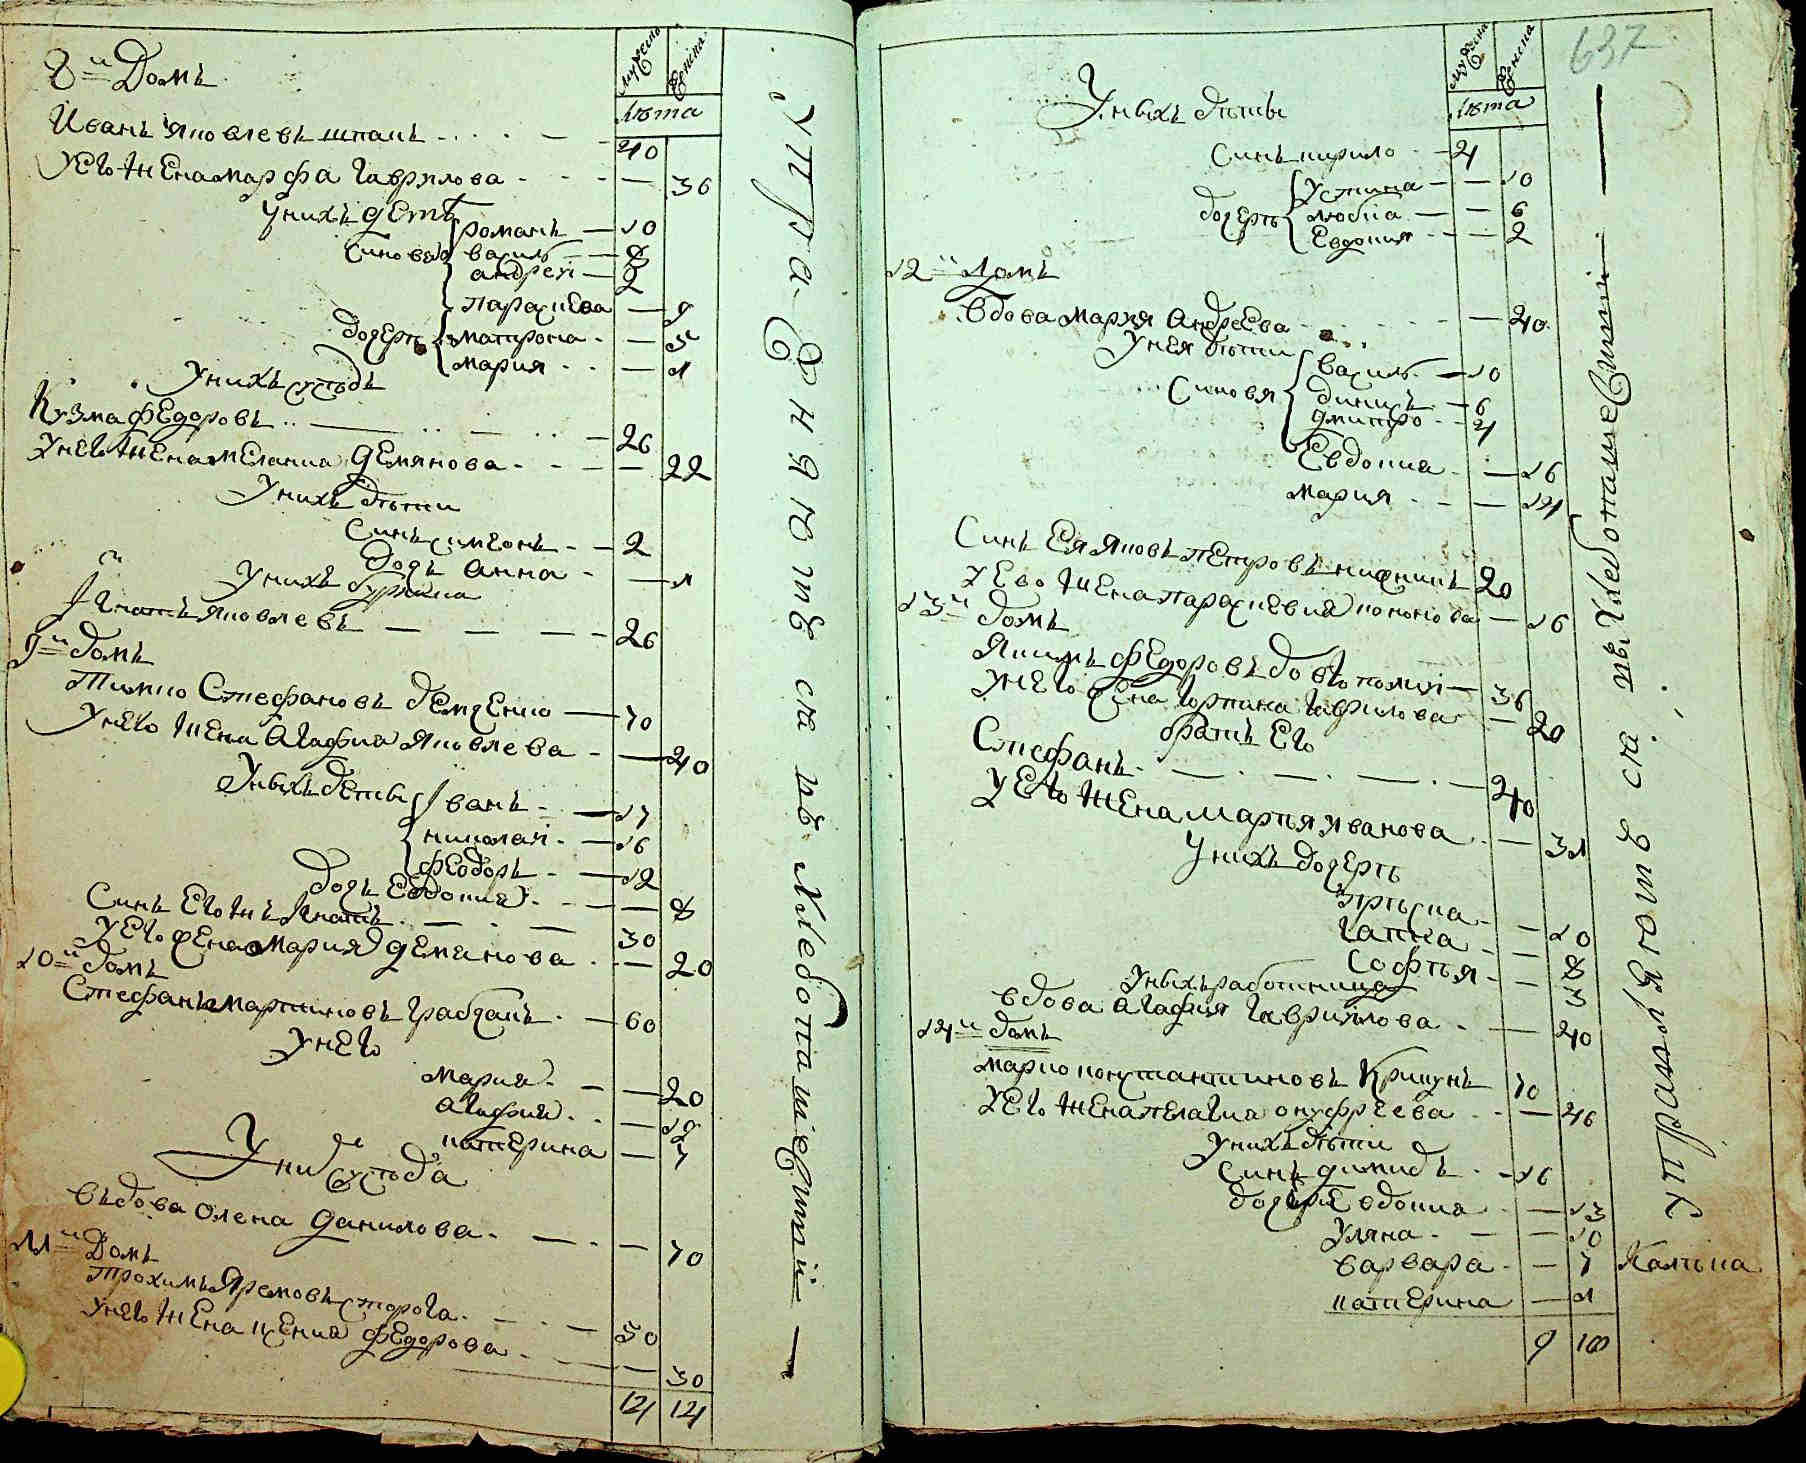 8й Домъ
мужеска
женска
лѣта
Иванъ Яковлевъ шпакъ 40
У его жена марфа гаврилова 36
У нихъ дети
Синовья романъ 10
василь 8
андрей 2
дочерѣ параскева 9
матрона 5
мария 1
У нихъ сусѣдъ
Кузма Федоровъ 26
У него жена мелания демянова 22
У нихъ дѣти
Синъ симеонъ 2
дочь анна 1
У нихъ бурлака
Игнатъ яковлевъ 26
9й домъ
Тимко Стефановъ демченко 70
У него жена агафия яковлева 40
У ныхъ дети Иванъ 17
николай 16
феодоръ 12
дочь Евдокия 8
Синъ его же Игнатъ 30
У его жена мария демянова 20
10й домъ
Стефанъ мартиновъ грабчакъ 60
У него
мария 20
агафия 12
катерина 7
У ни же сусѣда
вьдова олена данилова 70
11й Домъ
Трохимъ Яремовъ сторога 50
У него жена ксения федорова 30
14 14
упражняются въ хлебопашествии
637
мужеска
женска
лѣта
У ныхъ дѣты
Синъ кирило 4
дочерѣ устина 10
любка 6
Евдокия 2
12й домъ
Вдова мария андреева 40
У нея дѣти
Синовя василь 10
динисъ 6
дмитро 4
Евдокия 16
мария 14
Синъ ея яковъ петровъ 20
У его жена параскевия кононова 16
13й домъ
Якимъ федоровъ 36
У него жена горпина гаврилова 20
братъ его
Стефанъ 40
У его жена мария иванова 31
У нихъ дочерѣ
приска 10
гапка 8
Софѣя 3
У ныхъ работница
вдова агафия гавриилова 40
14й домъ
марко константиновъ Крицунъ 70
У его жена пелагия онуфреева 46
У нихъ дѣти
Синъ димидъ 16
дочери Евдокия 13
Уляна 10
варвара 7
катерина 1
9 18
упражняются въ хлебопашествии